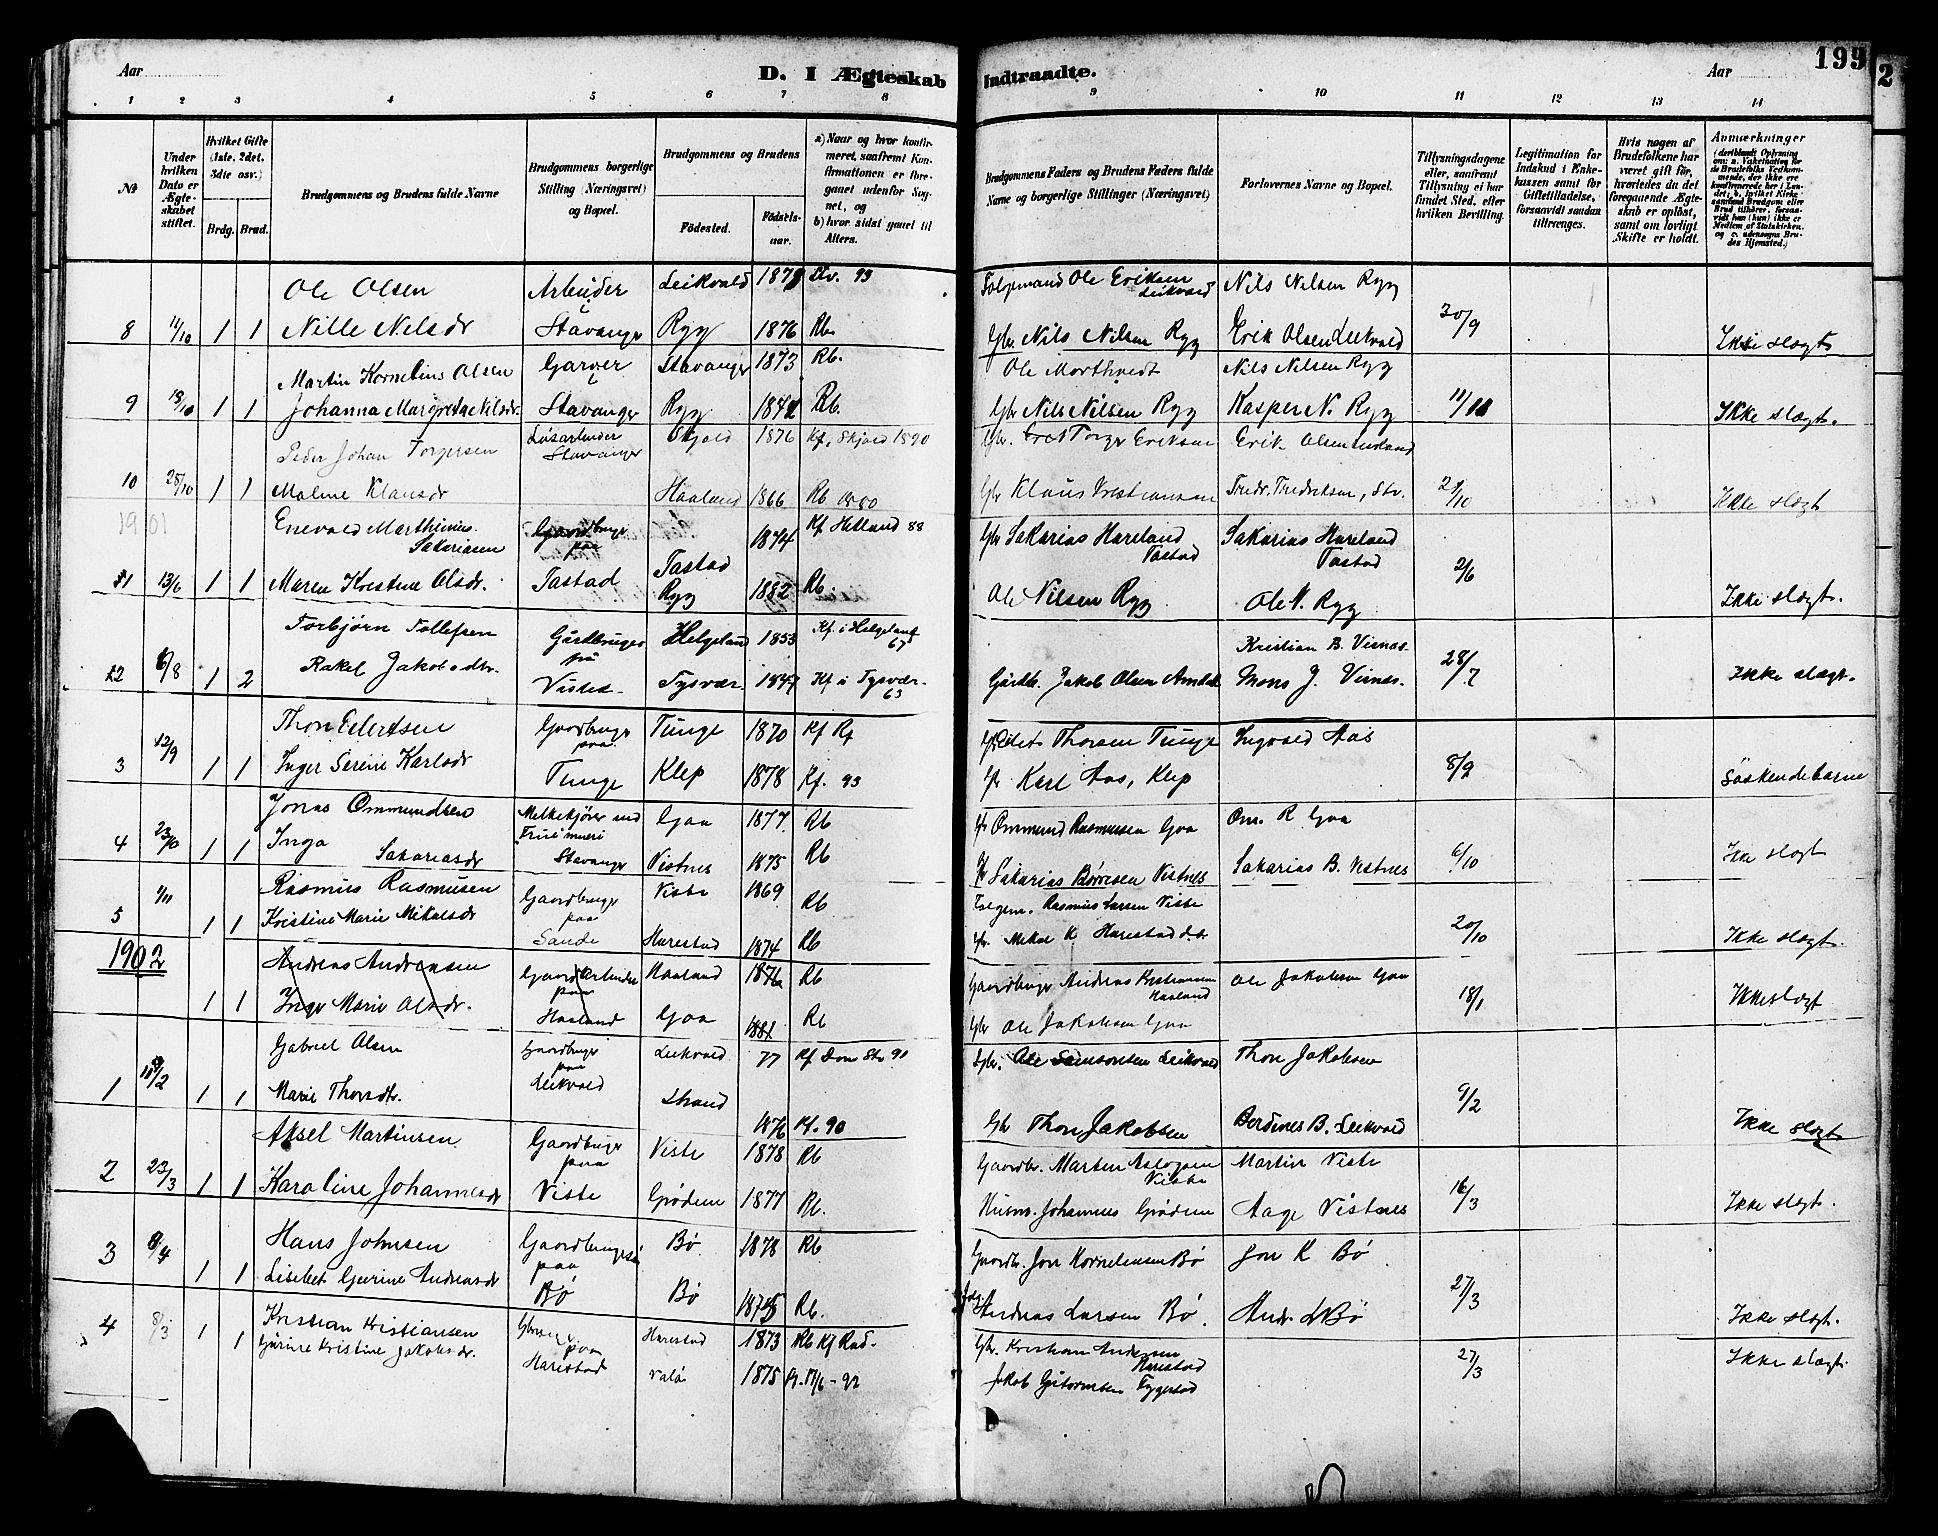 Aar
D. I Ægteskab
Indtraadte.
Aar
199
2
1 2 3 4 5 6 7 8
9 10 11 12 13 14
No
Under hvilken Dato er Ægteskabet stiftet.
Hvilket Gifte (1ste, 2det, 3die osv.)
Brdg. Brud.
Brudgommens og Brudens fulde Navne
Brudgommens borgerlige Stilling (Næringsvei) og Bopæl.
Brudgommens og Brudens
Fødested.
Fødselsaar.
a) Naar og hvor konfirmeret, saafremt Konfirmationen er foregaaet udenfor Sognet, og
b) hvor sidst gaaet til Alters.
Brudgommens Faders og Brudens Faders fulde Navne og borgerlige Stillinger (Næringsvei)
Forlovernes Navne og Bopæl.
Tillysningsdagene eller, saafremt Tillysning ei har fundet Sted, efter hvilken Bevilling.
Legitimation for Indskud i Enkekassen samt for Giftetilladelse, forsaavidt saadan tiltrænges.
Hvis nogen af Brudefolkene har været gift før, hvorledes da det foregaaende Ægteskab er opløst, samt om lovligt Skifte er holdt.
Anmærkninger
Ole Olsen Arbeider Leikvold 187 Stv. 93 Folgemand Ole Eriksen Leikvold Nils Nilsen Ryg
8 11/10 1 1 Nille Nilsdr Stavanger Ryg 1876 Rb. Gbr Nils Nilsen Ryg Erik Olsen Leikvold 30/9 Ikke slægt
Martin Kornelius Olsen Garver Stavanger 1873 Rb. Ole Morthvedt Nils Nilsen Ryg
9 18/10 1 1 Johanna Margrete Nilsdr. Stavanger Ryg 187 Rb. Gbr Nils Nilsen Ryg Kasper N. Ryg 11/10 Ikke slægt.
Peder Johan Torgersen Løsarbeider Stavanger Skjold 1876 Kf. Skjold 1890 Gbr. Torger Eriksen Erik Olsen
10 25/10 1 1 Malene Klausdr Haaland 1866 Rb Gbr Klaus Fredr. Fredriksen, Stv. 21/10 Ikke slægt
1901
Enevald Marthinius Sakariasen Gaardbruger paa 1874 Kf Hetland 88 Gbr Sakarias Hareland Tastad Sakarias Hareland Tastad
1 13/6 1 1 Maren Kristine Olsdr. Tastad Tastad Ryg 1882 Rb. Ole Nilsen Ryg Ole N. Ryg 2/6 Ikke slægt.
Torbjørn Tollefsen Gårdbruger på Helgeland 1853 Kf. i Helgeland 67 Kristian B. Visnes
2 6/8 1 2 Rakel Jakobsdtr. Viste Tysvær 1847 Kf i Tysvær 63 Gårdb. Jakob Olsen Mons J. Visnes. 28/7 Ikke slægt.
Thon Eilertsen Gaardbruger paa Tunge 1870 Kf Rf Eilert Thorsen Tunge Ingvald Aas
3 12/9 1 1 Inger Serine Karlsdr Tunge Klep 1878 Kf. 93 Gbr Karl Aas, Klep 8/9 Søskendebarne
Jonas Ommundsen Melkekjører ved Stavanger Goa 1877. Rb Gbr Ommund Rasmussen Goa Om. R Goa
4 23/10 1 1 Inga Sakariasdr Vistnes 1875 Rb Gbr Sakarias Børresen Vistnes Sakarias B. Vistnes 6/10 Ikke slægt
Rasmus Rasmusen Gaardbruger paa Viste 1869 Rb Folgem. Rasmus Larsen Viste
5 1/11 1 1 Kristine Marie Mikalsdr Sande Harestad 1874 Rb Gbr. Mikal K Harestad 20/10 Ikke slægt.
1902
Andreas Andreasen Gaardarbeider paa Haaland 1876 Rb Gaardbruger Andreas Kristiansen Haaland Ole Jakobsen Goa
1 1 Inger Marie Olsdr. Haaland Goa 1881 Rb Gbr Ole Jakobsen Goa 18/1 Ikke slægt
Gabriel Olsen Gaardbruger paa Leikvold 77 Kf Dom Stv 91 Gbr. Ole Simonsen Leikvold Thon Jakobsen
1 /2 1 1 Marie Thorsdtr. Leikvold Strand 1876 Kf. 90 Gbr Thon Jakobsen Berdines B. Leikvold 9/2 Ikke slægt
Aksel Martinsen Gaardbruger paa Viste 1878 Rb Gaardbr. Martin Aslagsen Viste Martin Viste
2 23/3 1 1 Karoline Johannesdr Viste Grødem 1877 Rb. Husm. Johannes Grødem Aage Vistnes 16/3 Ikke slægt.
Hans Johnsen Gaardbrugersøn paa Bø 1878 Rb Gaardbr. Jon Korneliussen Bø Jon K Bø
3 8/4 1 1 Lisebet Gurine Andreasdr Bø Bø 1875 Rb. Andreas Larsen Bø. Andr. L Bø 27/3 Ikke slægt.
4 8/3 1 1 Kristian Kristiansen Gbr paa Harestad Harestad 1873 Rb Gbr. Kristian Andersen Harestad 27/3 Ikke slægt.
Gurine Kristine Jakobsdr. 1875 Jakob Tyggestad